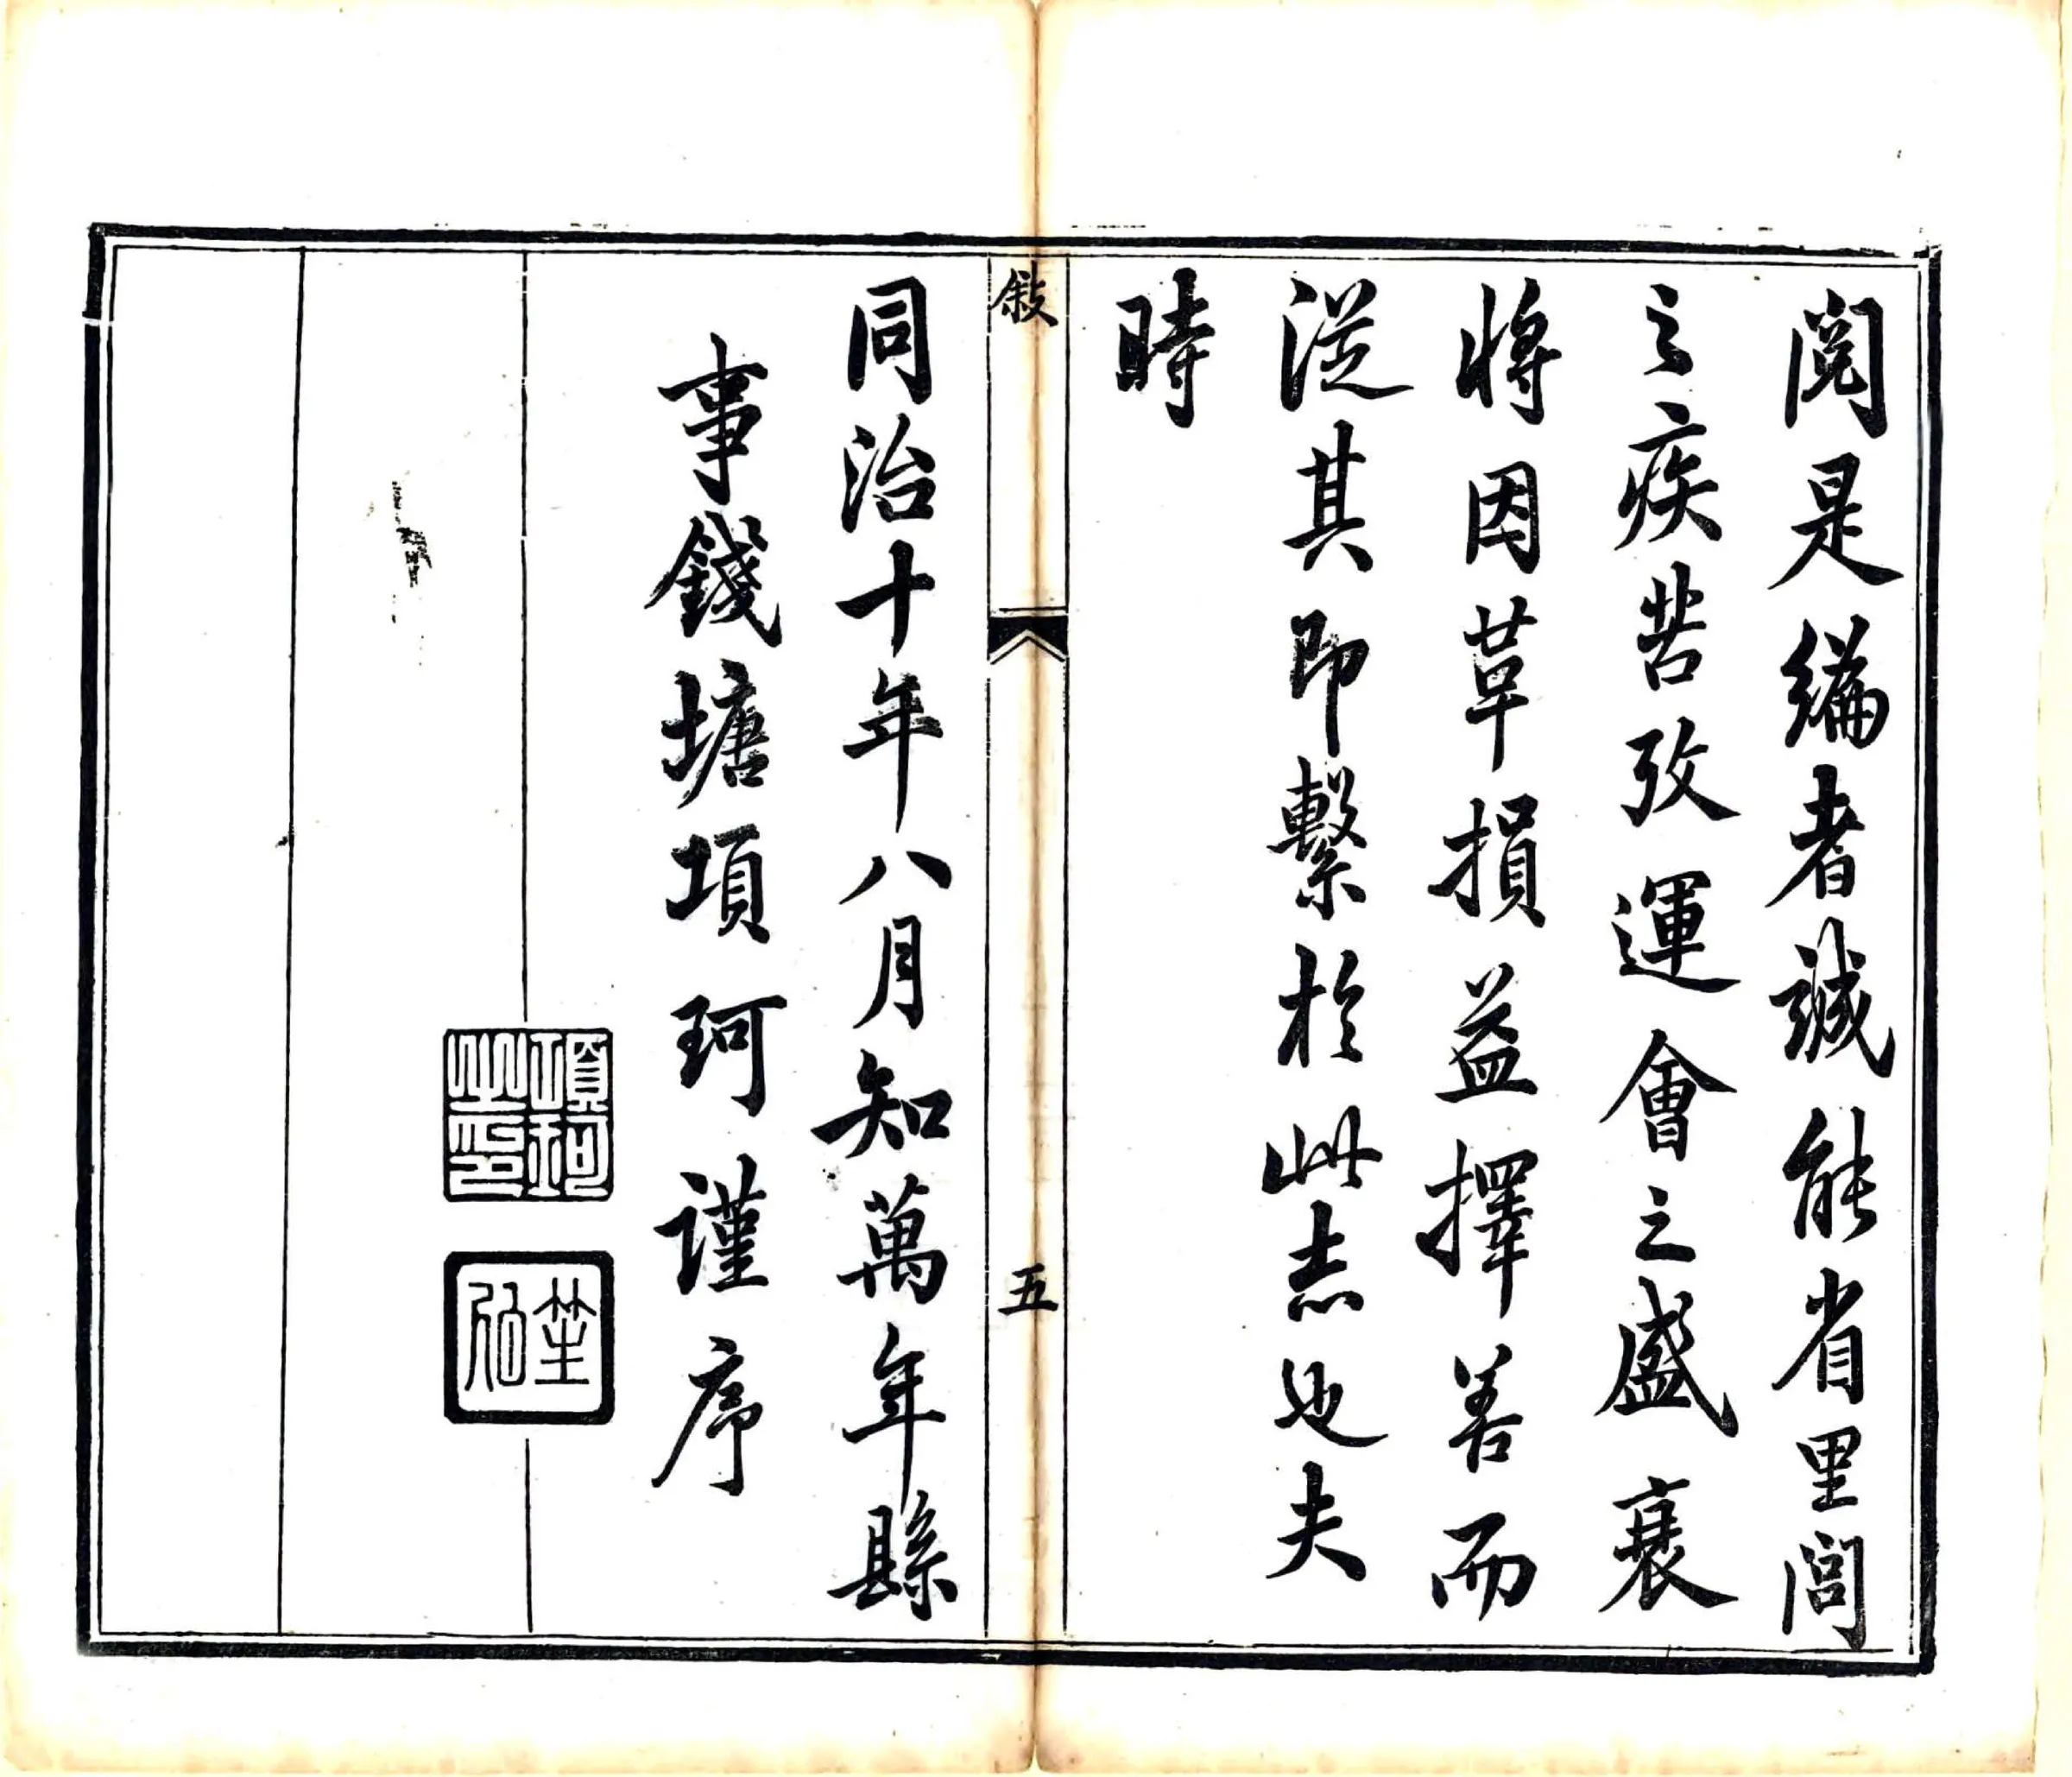 閲是編者誠能省里閭
之疾苦攷運會之盛衰
將因革損益擇善而
從其即繫於此志也夫
時
敘
五
同治十年八月知萬年縣
事錢塘項珂謹序
項珂
之印